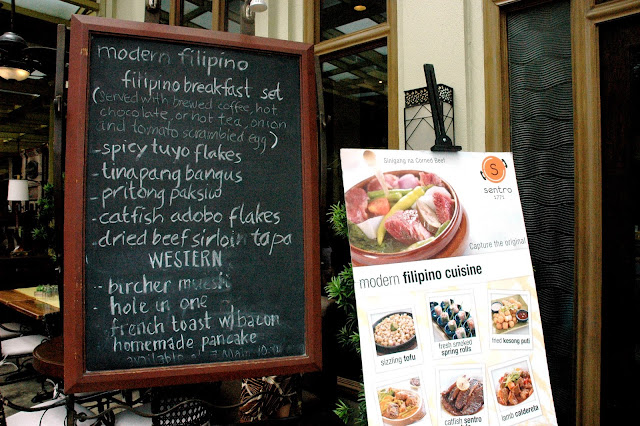 modern filipino
filipino breakfast set
(served with brewed coffee, hot
chocolate, or hot tea, onion
and tomato scrambled egg)
- spicy tuyo flakes
- tinapang bangus
- pritong paksiw
- catfish adobo flakes
- dried beef sirloin tapa
WESTERN
- bircher muesli
- hole in one
french toast w/ bacon
homemade pancake
available
Sinigang na Corned Beef
S
sentro
1771
Capture the original
modern filipino cuisine
sizzling tofu
fresh smoked
spring rolls
fried kesong puti
catfish sentro
lamb caldereta